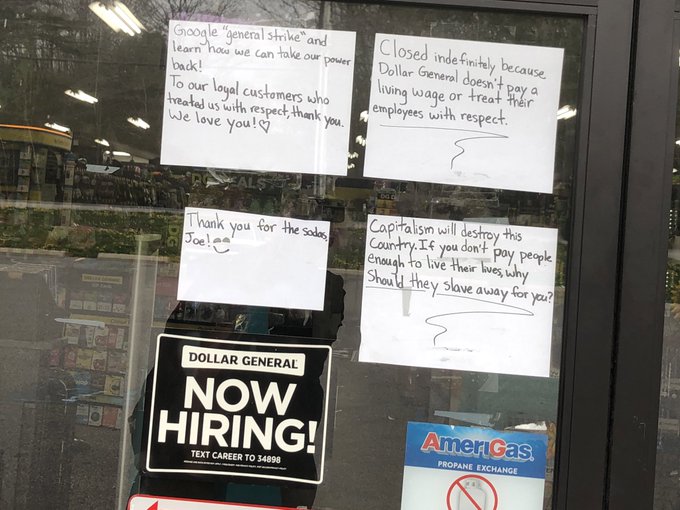 Google "general strike" and
learn how we can take our power
back!
To our loyal customers who
treated us with respect, thank you.
We love you!
Closed indefinitely because
Dollar General doesn't pay a
living wage or treat their
employees with respect.
Thank you for the sodas,
Joe!
Capitalism will destroy this
Country. If you don't pay people
enough to live their lives, why
should they slave away for you?
DOLLAR GENERAL
NOW
HIRING!
TEXT CAREER TO 34898
AmeriGas
PROPANE EXCHANGE